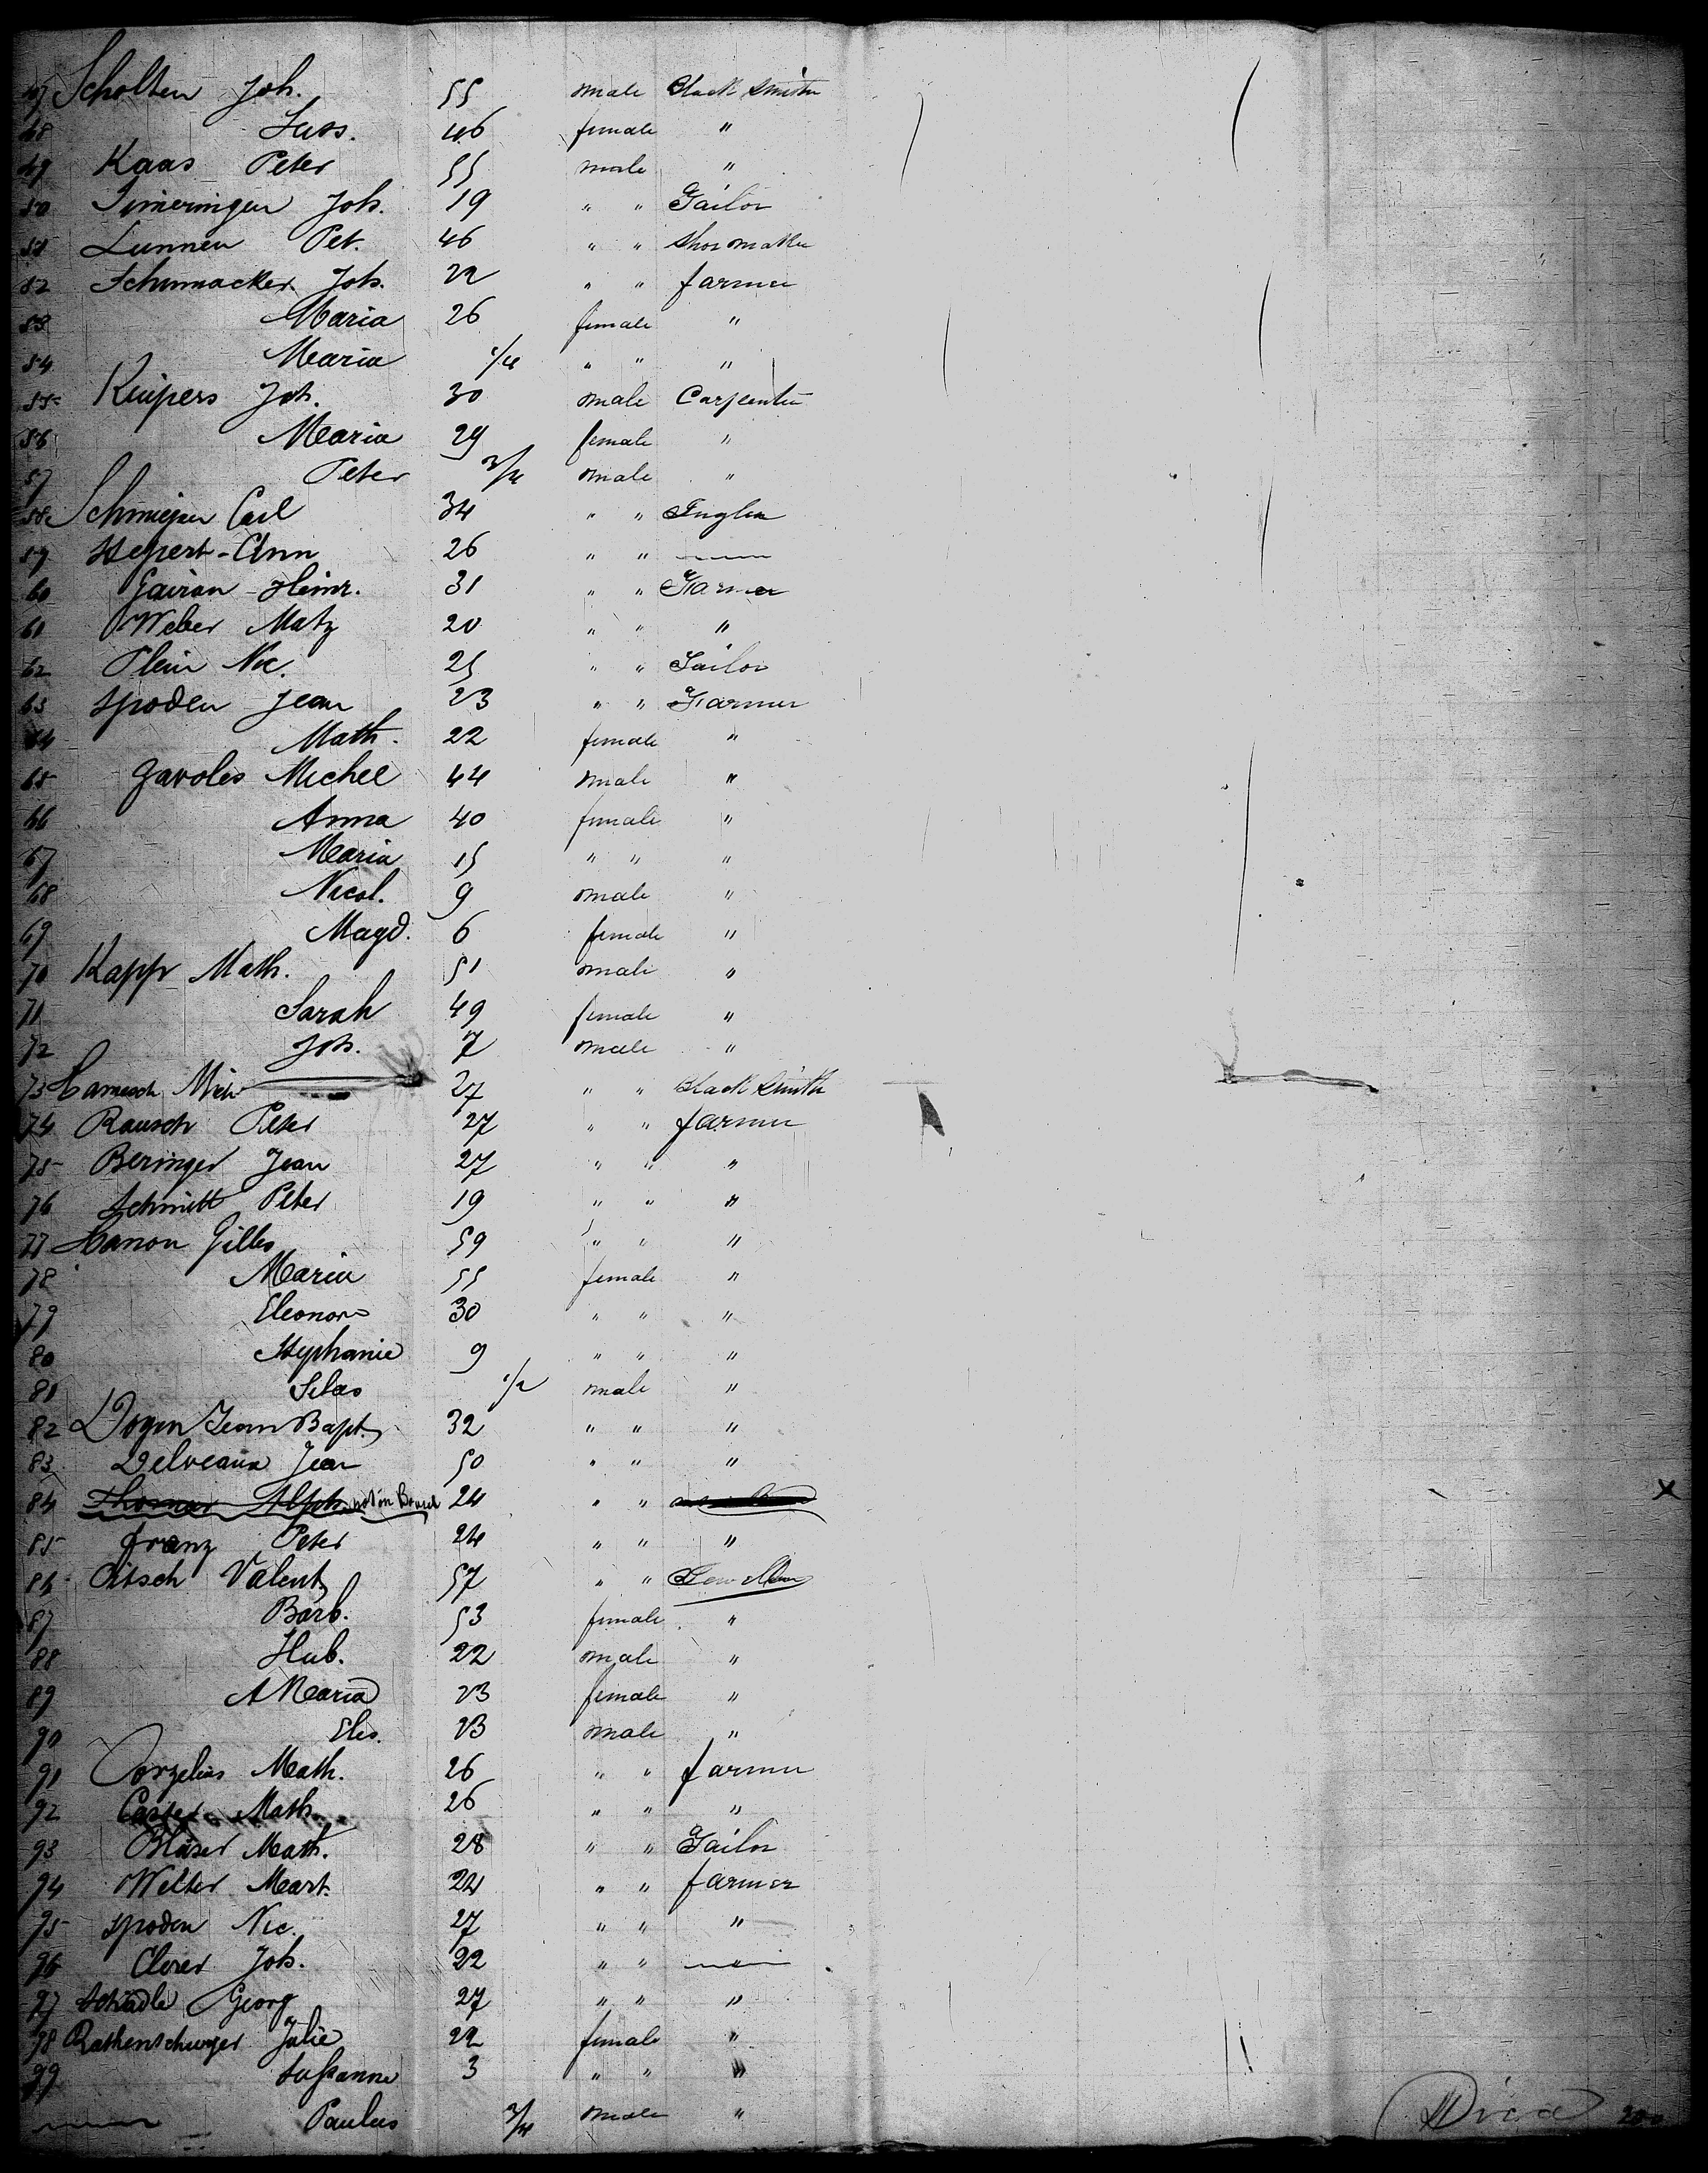 47 Scholten Joh. 55 male Black Smith
48 Suss. 46 female "
49 Kaas Peter 55 male "
50 Timeringer Joh. 19 " " Tailor
51 Lunnen Pet. 46 " " Shoemaker
52 Schumacker Joh. 22 " " farmer
53 Maria 26 female "
54 Maria 1/4 " " "
55 Kuipers Joh. 30 male Carpenter
56 Maria 29 female "
57 Peter 3/4 male "
58 Carl 34 " "
59 Ann 26 " "
60 Heinr. 31 " " Farmer
61 Weber Matz 20 " " "
62 Plein Nic. 25 " " Tailor
63 Spoden Jean 23 " " Farmer
64 Math. 22 female "
65 Gavoles Michel 44 male "
66 Anna 40 female "
67 Maria 15 " " "
68 Nicol. 9 male "
69 Magd. 6 female "
70 Kapp Math. 51 male "
71 Sarah 49 female "
72 Joh. 7 male "
73 Mich 27 " " Black Smith
74 Rausch Peter 27 " " farmer
75 Beringer Jean 27 " " "
76 Schmitt Peter 19 " " "
77 Hanon Gilles 59 " " "
78 Maria 55 female "
79 Eleonore 30 " " "
80 Stephanie 9 " " "
81 Silas 1/2 male "
82 Jean Bapt. 32 " " "
83 Delveaux Jean 50 " " "
84 Thomas Alph. not on Board 24 " "
85 franz Peter 24 " " "
86 Valent. 57 " "
87 Barb. 53 female "
88 Hub. 22 male "
89 A Maria 23 female "
90 Elis. 23 male "
91 Corzelius Math. 26 " " farmer
92 Casper Math. 26 " " "
93 Bläser Math. 28 " " Tailor
94 Welter Mart. 24 " " farmer
95 Spoden Nic. 27 " " "
96 Clerer Joh. 22 " " "
97 Schädle Georg 27 " " "
98 Julie 22 female "
99 Sußanne 3 " " "
Paulus 3/4 male "